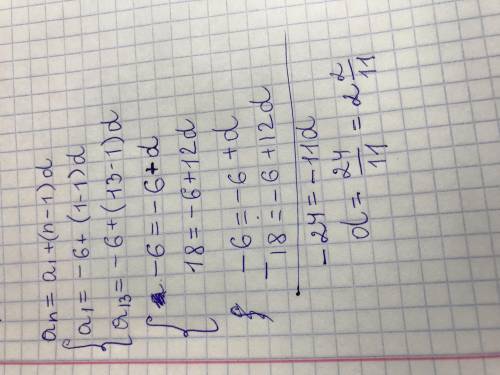 an = a1 + (n-1)d
{ a1 = -6 + (1-1)d
a13 = -6 + (13-1)d
{ -6 = -6 + d
18 = -6 + 12d
-6 = -6 + d
18 = -6 + 12d
-24 = -11d
d = 24/11 = 2 2/11